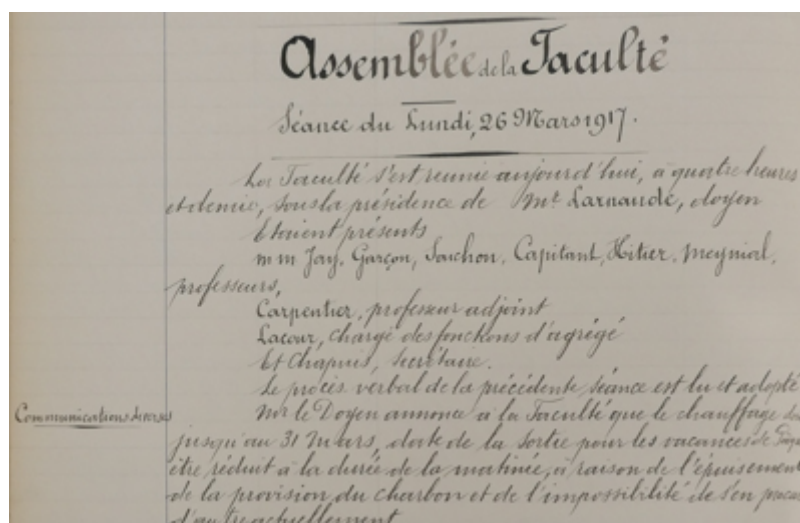 Assemblée de la Faculté
Séance du Lundi, 26 Mars 1917.
La Faculté s'est réunie aujourd'hui, à quatre heures
et demie, sous la présidence de Mr Larnaude, doyen
Etaient présents
MM Jay, Garçon, Souchon, Capitant, Hitier, Meynial,
professeurs,
Carpentier, professeur adjoint
Lacour, chargé des fonctions d'agrégé
Et Chapuis, secrétaire.
Le procès verbal de la précédente séance est lu et adopté
Communications diverses
Mr le Doyen annonce à la Faculté que le chauffage
jusqu'au 31 Mars, date de la sortie pour les vacances de
être réduit à la durée de la matinée, à raison de l'épuisement
de la provision du charbon et de l'impossibilité de s'en
d'autre actuellement